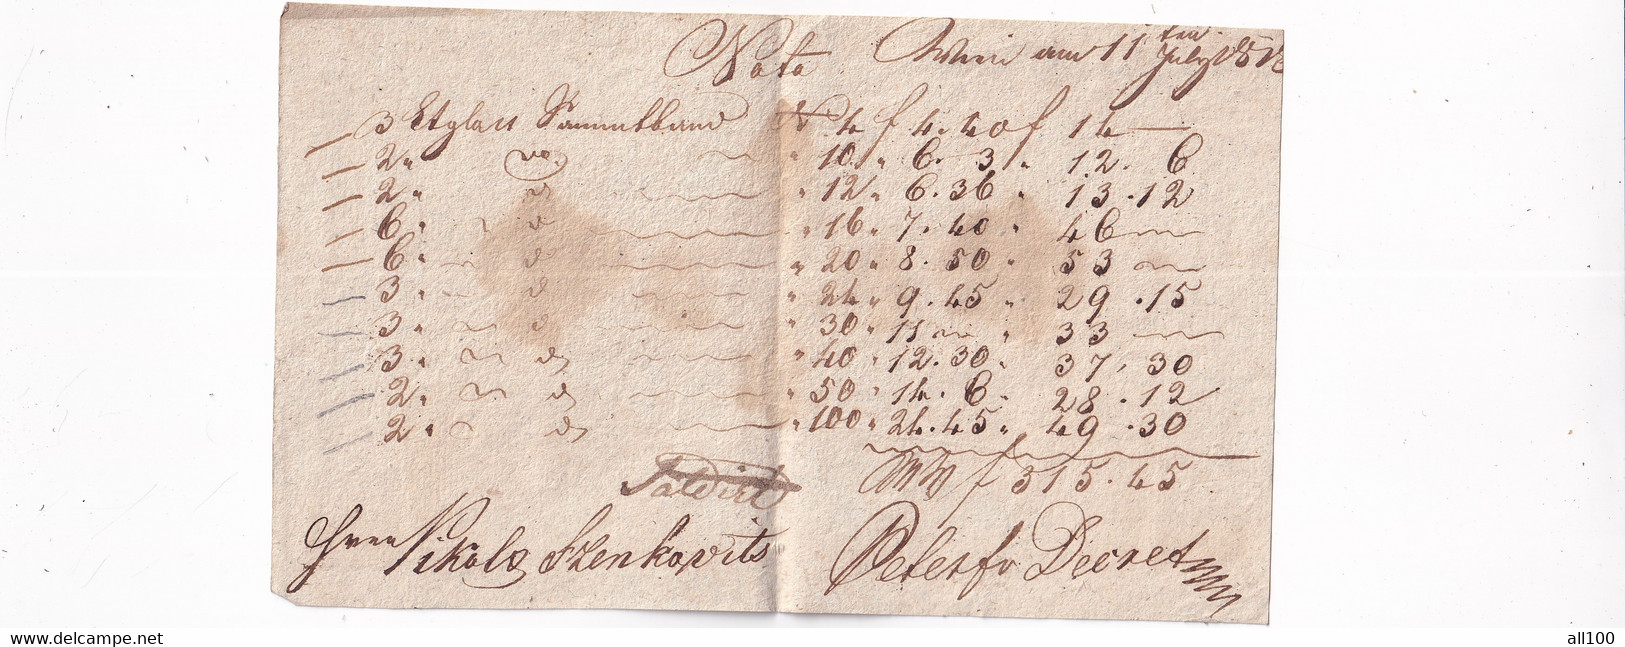 Nota Wien am 11ten July
3 Sammtband N 4 f 4. 40 f 14 —
2 " do " 10 " 6. 3 " 12. 6
2 " d " 12 " 6. 36 " 13. 12
6 " d " 16 " 7. 40 " 46 —
6 " d " 20 " 8. 50 " 53 —
3 " d " 24 " 9. 45 " 29. 15
3 " d " 30 " 11 — " 33 —
3 " d " 40 " 12. 30 " 37. 30
2 " d " 50 " 14. 6 " 28. 12
2 " d " 100 " 24. 45 " 49. 30
WW f 315. 45
Saldirt
Herrn Nikola Szenkovits
Decret
Delcampe.net
all100